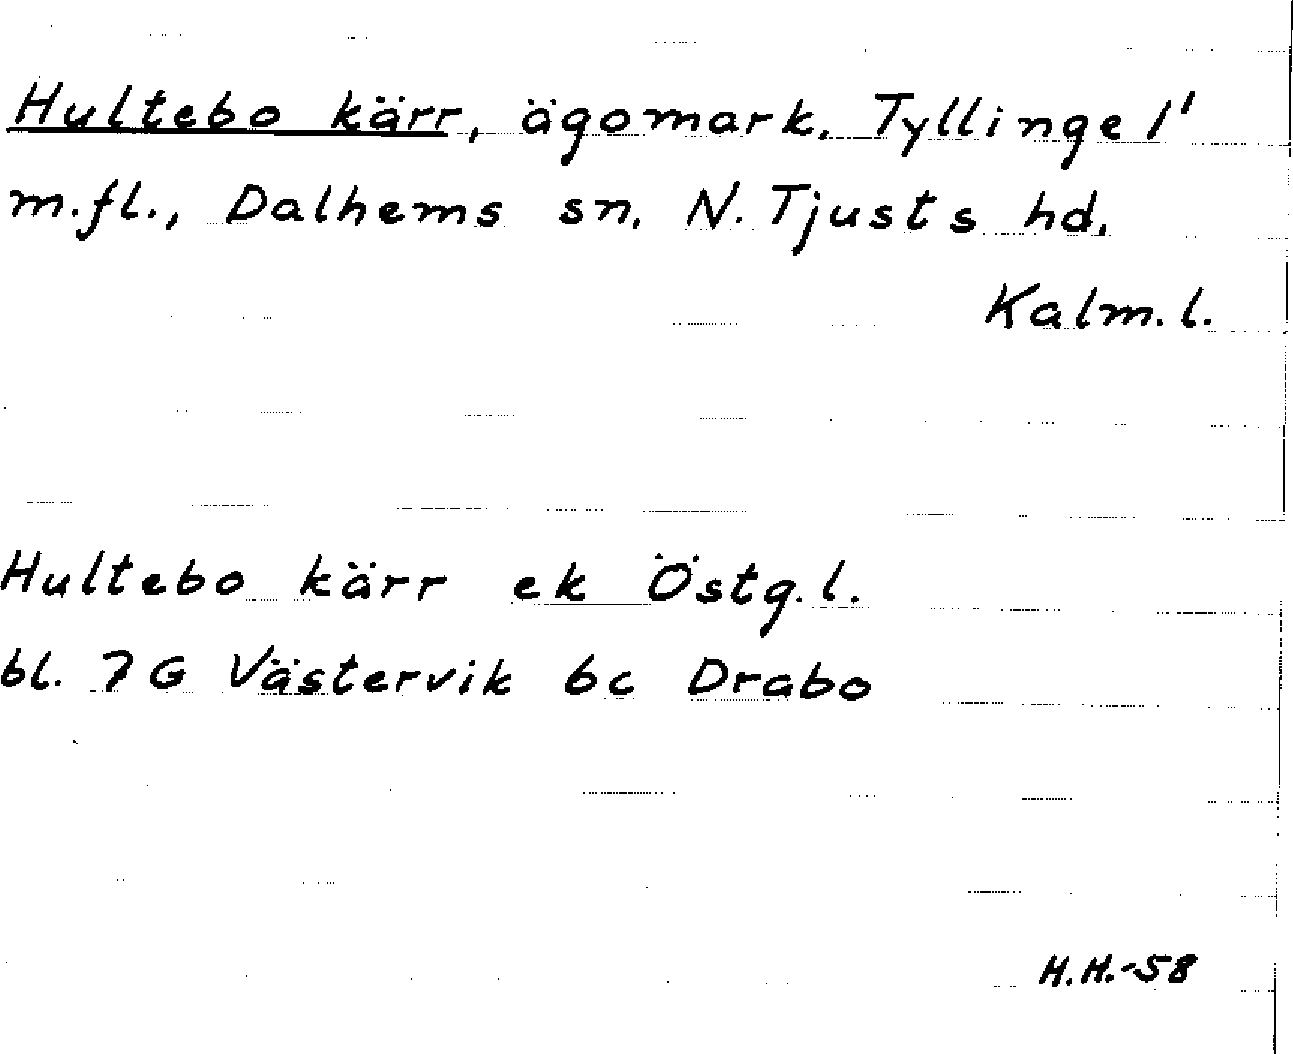 Hultebo kärr, ägomark, Tyllinge 1'
m.fl., Dalhems sn, N. Tjusts hd,
Kalm. l.
Hultebo kärr ek Östg. l.
bl. 7 G Västervik bc Drabo
H.H.-58